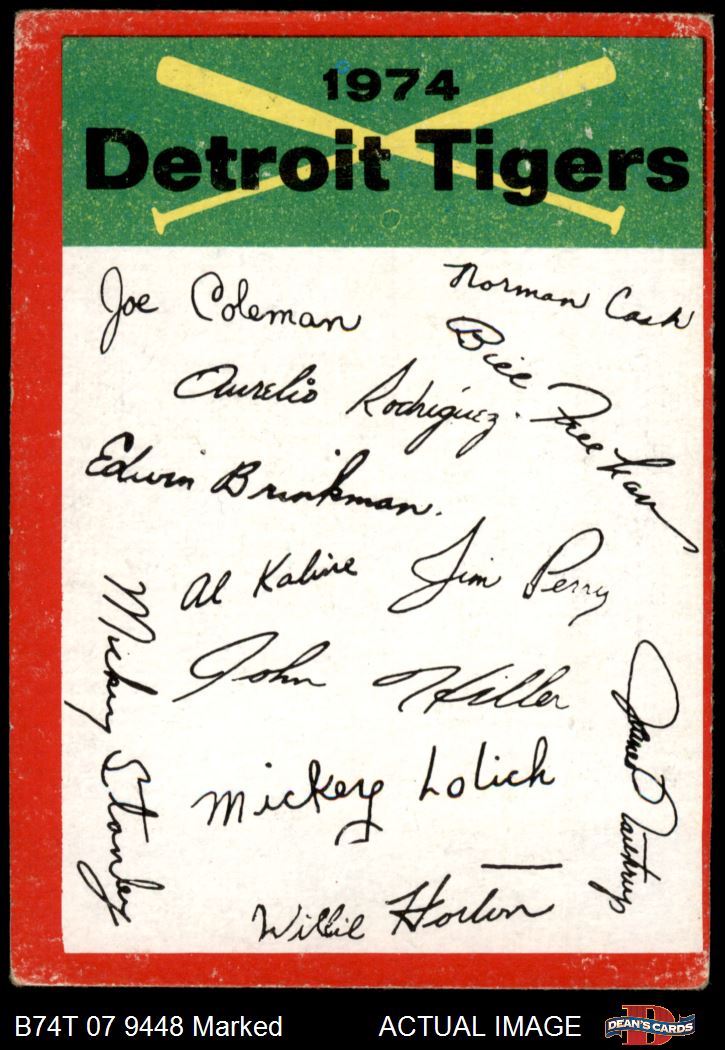 1974
Detroit Tigers
Joe Coleman
Norman Cash
Aurelio Rodriguez.
Bill Freehan
Edwin Brinkman.
Al Kaline
Jim Perry
John Hiller
Mickey Stanley
Mickey Lolich
James Northrup
Willie Horton
B74T 07 9448 Marked
ACTUAL IMAGE
D
DEAN'S CARDS